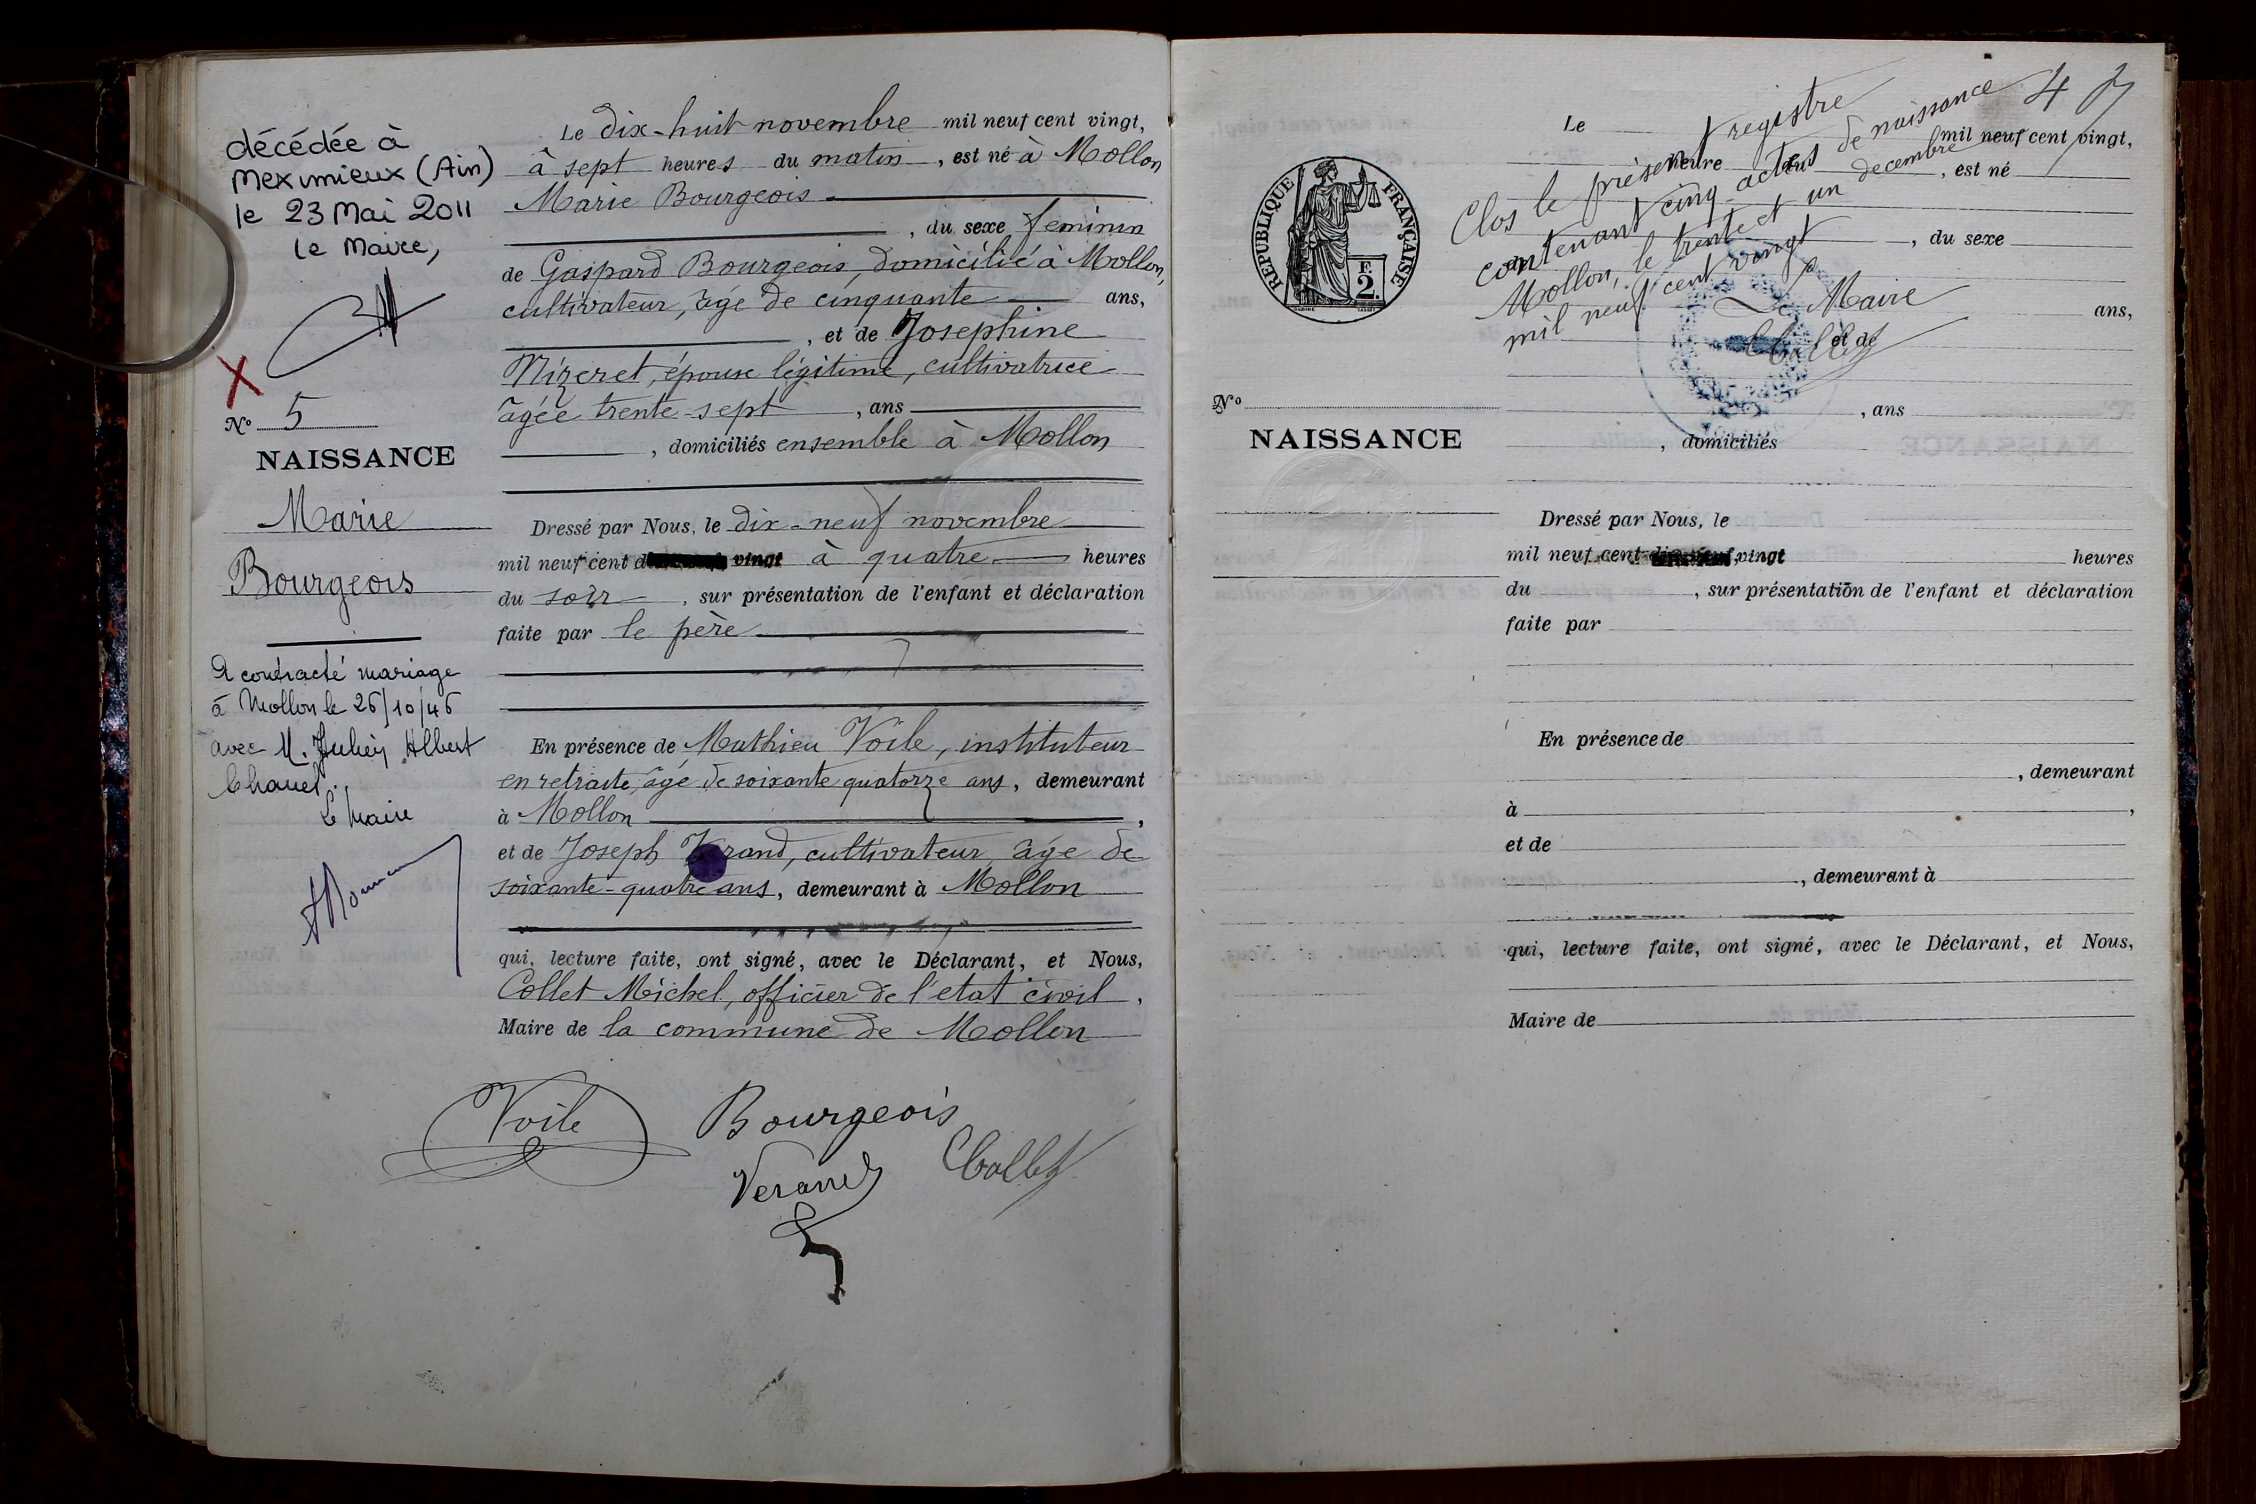 décédée à
Meximieux (Ain)
le 23 Mai 2011
le Maire,
N° 5
NAISSANCE
Marie
Bourgeois
A contracté mariage
à Mollon le 26/10/46
avec M. Julien Albert
Chanel.
Le Maire
Le dix-huit novembre mil neuf cent vingt,
à sept heures du matin, est né à Mollon
Marie Bourgeois
, du sexe feminin
de Gaspard Bourgeois, domicilié à Mollon,
cultivateur, âgé de cinquante ans,
, et de Josephine
Mizeret, épouse légitime, cultivatrice
âgée trente-sept, ans
, domiciliés ensemble à Mollon
Dressé par Nous, le dix-neuf novembre
mil neuf cent vingt à quatre heures
du soir, sur présentation de l'enfant et déclaration
faite par le père
En présence de Mathieu Voile, instituteur
en retraite, âgé de soixante quatorze ans, demeurant
à Mollon,
et de Joseph Verand, cultivateur, âgé de
soixante-quatre ans, demeurant à Mollon
qui, lecture faite, ont signé, avec le Déclarant, et Nous,
Collet Michel, officier de l'etat civil,
Maire de la commune de Mollon
Voile
Bourgeois
Verand
Collet
47
Clos le présent registre
contenant cinq actes de naissance
Mollon, le trente et un decembre
mil neuf cent vingt
Le Maire
Collet
RÉPUBLIQUE FRANÇAISE
F.
2.
N°
NAISSANCE
Le mil neuf cent vingt,
heure du, est né
, du sexe
ans,
, et de
, ans
, domiciliés
Dressé par Nous, le
mil neuf cent vingt heures
du, sur présentation de l'enfant et déclaration
faite par
En présence de
, demeurant
à,
et de
, demeurant à
qui, lecture faite, ont signé, avec le Déclarant, et Nous,
Maire de